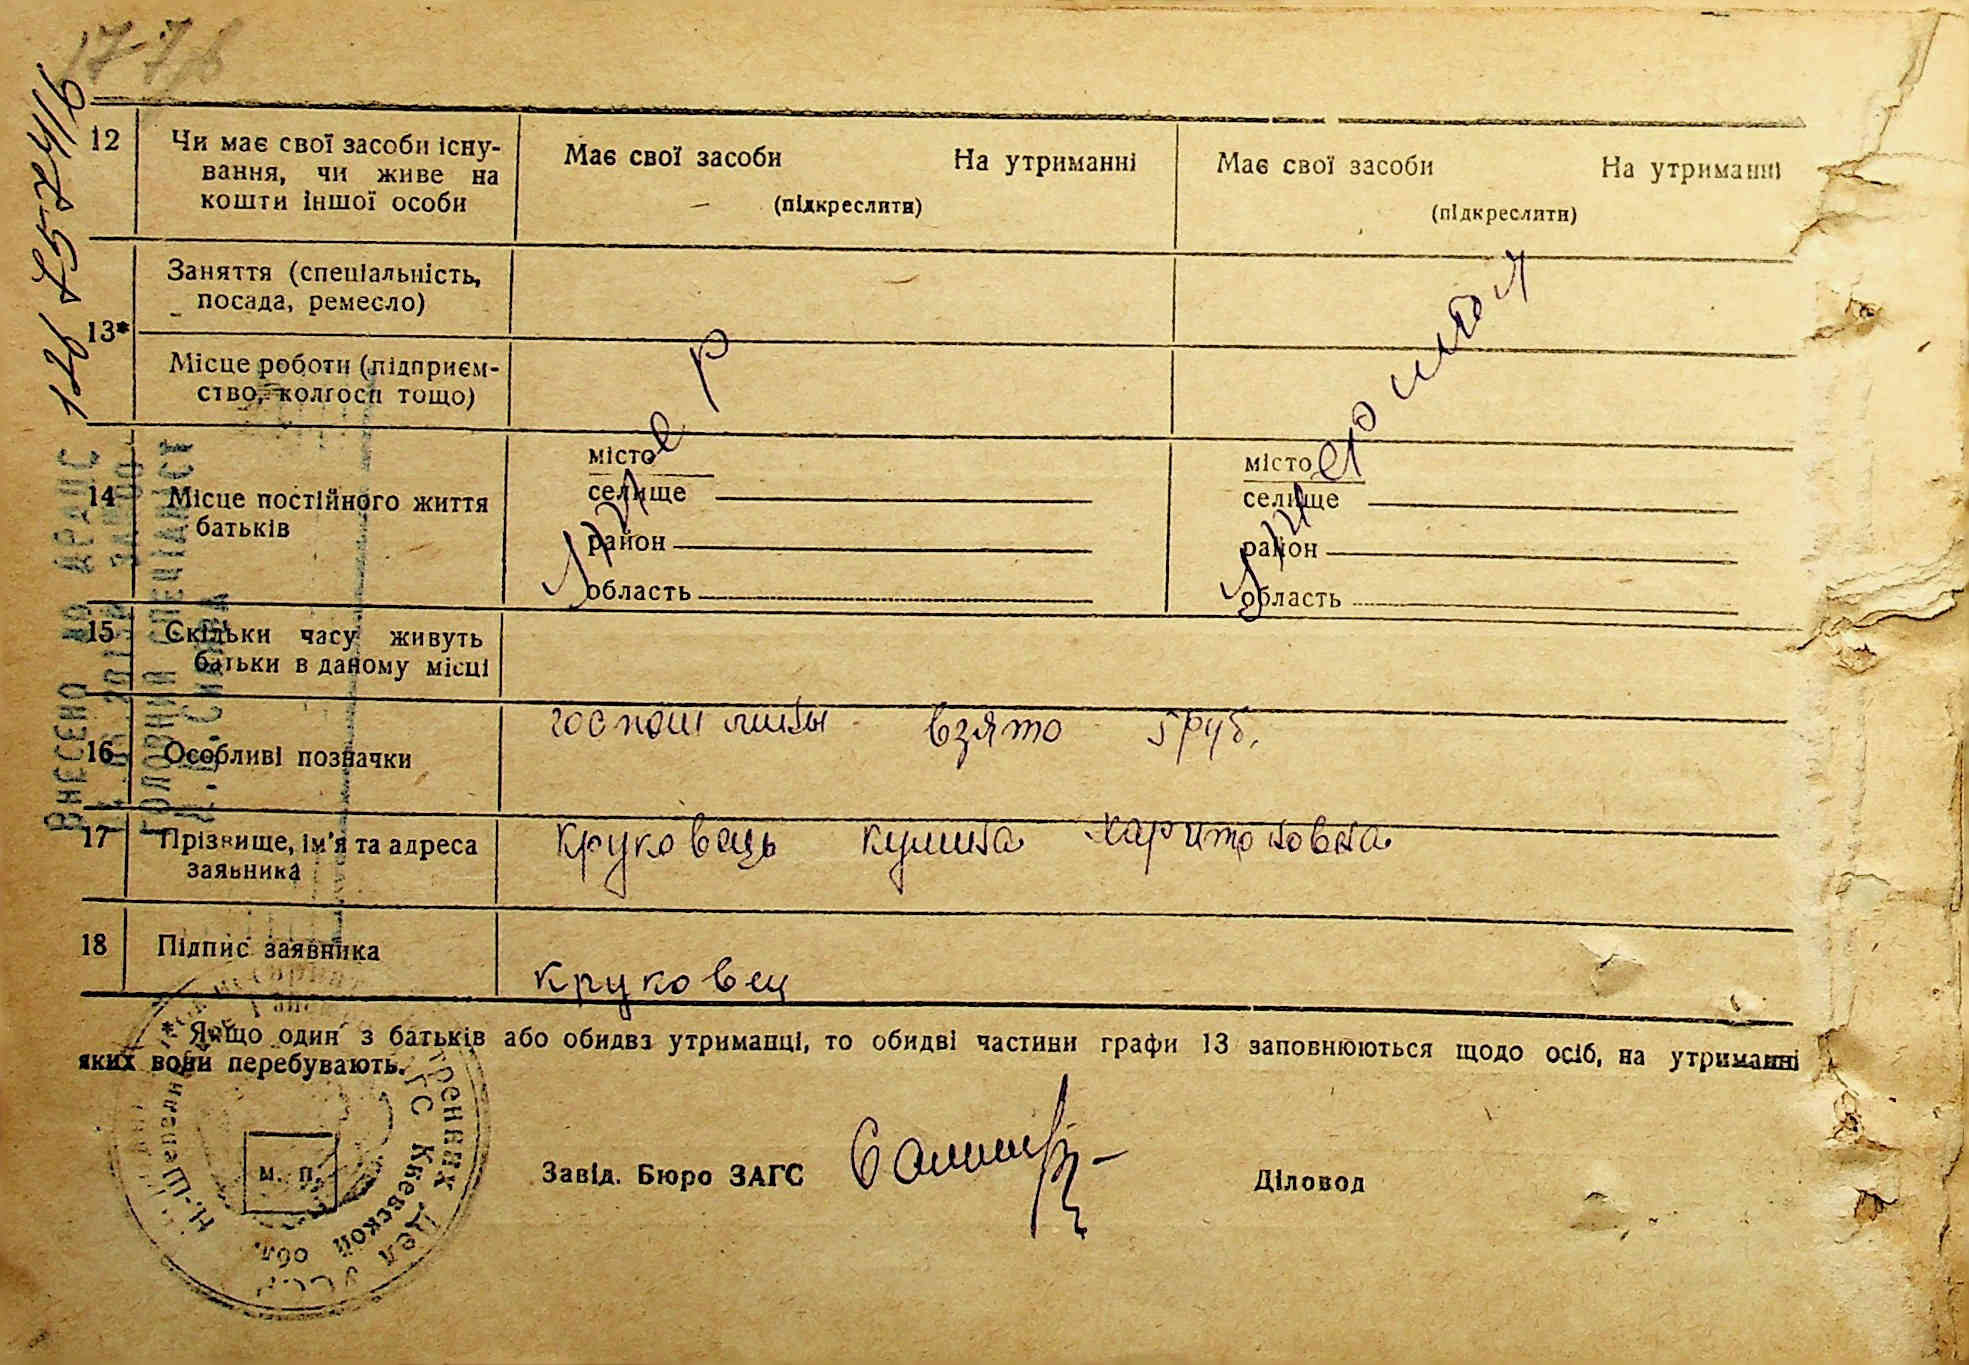 17-7/8
12
Чи має свої засоби існу-
вання, чи живе на
кошти іншої особи
Має свої засоби На утриманні
(підкреслити)
Має свої засоби На утриманні
(підкреслити)
13*
Заняття (спеціальність,
посада, ремесло)
Місце роботи (підприєм-
ство, колгосп тощо)
14
Місце постійного життя
батьків
місто
селище
район
область
місто
селище
район
область
15
Скільки часу живуть
батьки в даному місці
16
Особливі позначки
госпошлины взято 5 руб.
17
Прізвище, ім'я та адреса
заявника
Круковець Кулина Харитоновна
18
Підпис заявника
Круковец
* Якщо один з батьків або обидва утриманці, то обидві частини графи 13 заповнюються щодо осіб, на утриманні
яких вони перебувають.
М. П.
Завід. Бюро ЗАГС
Діловод
Внесено до ДРАЦС
Головний спеціаліст
Внутренних Дел УССР
ЗАГС Киевской обл.